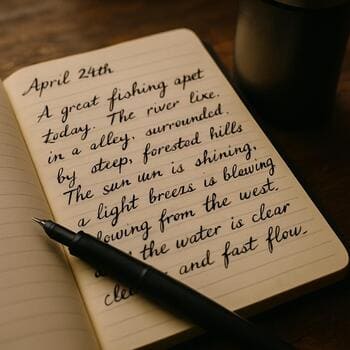 April 24th
A great fishing apet
today. The river lixe.
in a alley, surrounded.
by steep, forested hills
The sun un is shining,
a light breezs is blewing
lowing from the west.
the water is clear
and fast flow.